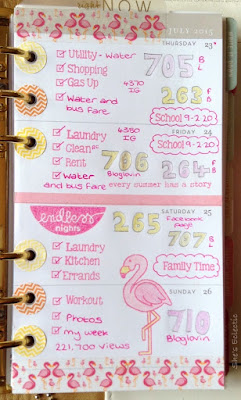 NOW
JULY 2015
THURSDAY 23
Utility - Water
705 BL
Shopping
Gas Up 4370 IG
263 FB
Water and bus fare
School 9-2 20
FRIDAY 24
Laundry 4380 IG
School 9-2 20
Clean
Rent
706 Bloglovin
264 FB
Water and bus fare
every summer has a story
SATURDAY 25
endless nights
265 Facebook Page
707 BL
Laundry
Kitchen
Family Time
Errands
SUNDAY 26
Workout
Photos
710 Bloglovin
my week
221,700 views